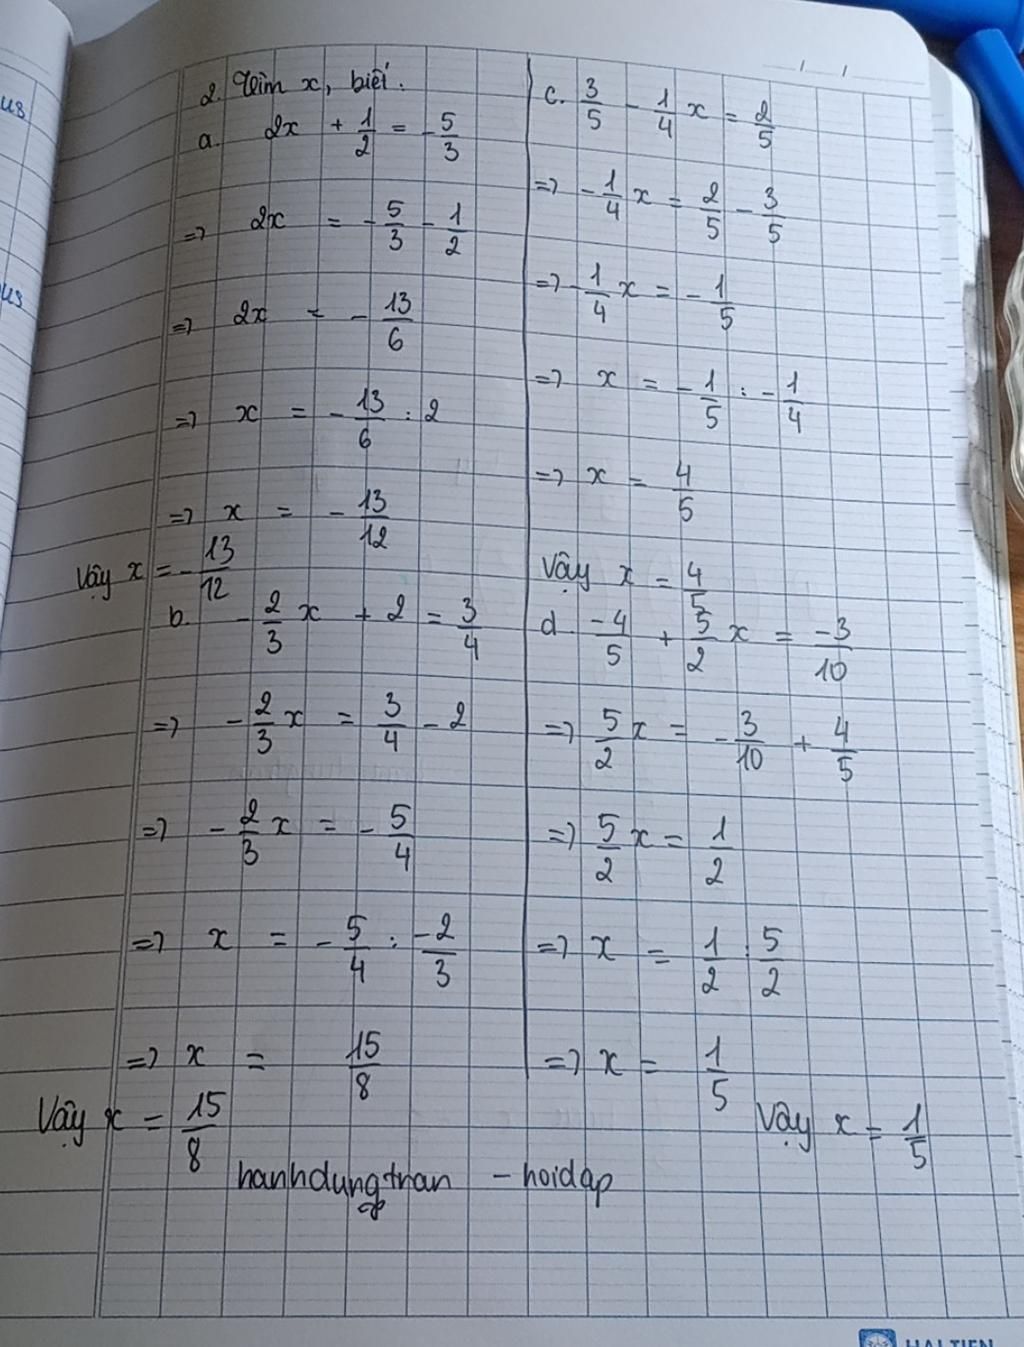 2. Tìm x, biết:
a. 2x + 1/2 = -5/3
=> 2x = -5/3 - 1/2
=> 2x = -13/6
=> x = -13/6 : 2
=> x = -13/12
Vậy x = -13/12
b. -2/3 x + 2 = 3/4
=> -2/3 x = 3/4 - 2
=> -2/3 x = -5/4
=> x = -5/4 : -2/3
=> x = 15/8
Vậy x = 15/8
c. 3/5 - 1/4 x = 2/5
=> -1/4 x = 2/5 - 3/5
=> -1/4 x = -1/5
=> x = -1/5 : -1/4
=> x = 4/5
Vậy x = 4/5
d. -4/5 + 5/2 x = -3/10
=> 5/2 x = -3/10 + 4/5
=> 5/2 x = 1/2
=> x = 1/2 : 5/2
=> x = 1/5
Vậy x = 1/5
hanhdungtran - hoidap
HAI TIEN